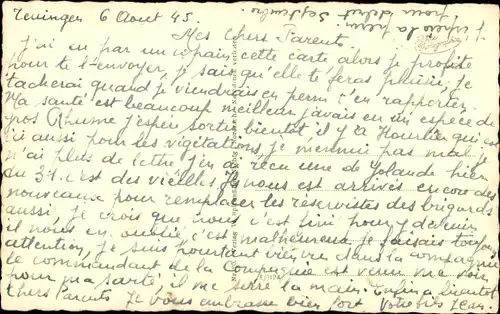 Teningen 6 Aout 45.
J'aurai la perm.
pour début Septembre.
Mes Chers Parents.
j'ai eu par un copain cette carte alors je profite
pour te l'envoyer, je sais qu'elle te feras plaisir, je
tacherai quand je viendrais en perm t'en rapporter.
Ma santé est beaucoup meilleur j'avais eu un espèce de
gros Rhume j'espère sortir bientôt il y a qui est
ici aussi pour les vegitations, je mennui pas mal, je
n'ai plus de lettre j'en ai reçu une de Yolande hier
du 31. c'est des vieilles. Je nous est arrivés encore des
nouveaux pour remplacer les réservistes des brigards
aussi, je crois que nous c'est fini pour y devenir,
il nous en oublié, c'est malheureux je faisais toujours
attention, je suis pourtant bien vu dans la compagnie
le commandant de la Compagnie est venu me voir
pour ma santé, il me serre la main. Enfin a bientot
chers Parents Je vous embrasse bien fort Votre fils Jean.